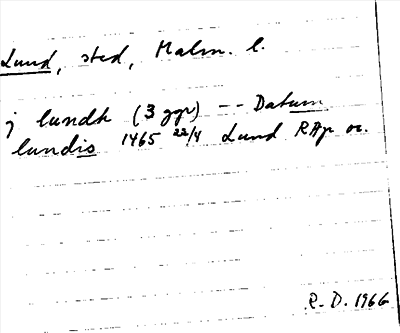 Lund, sted, Malm. l.
j lundh (3 ggr) -- Datum
lundis 1465 22/4 Lund RAp or.
R.D. 1966